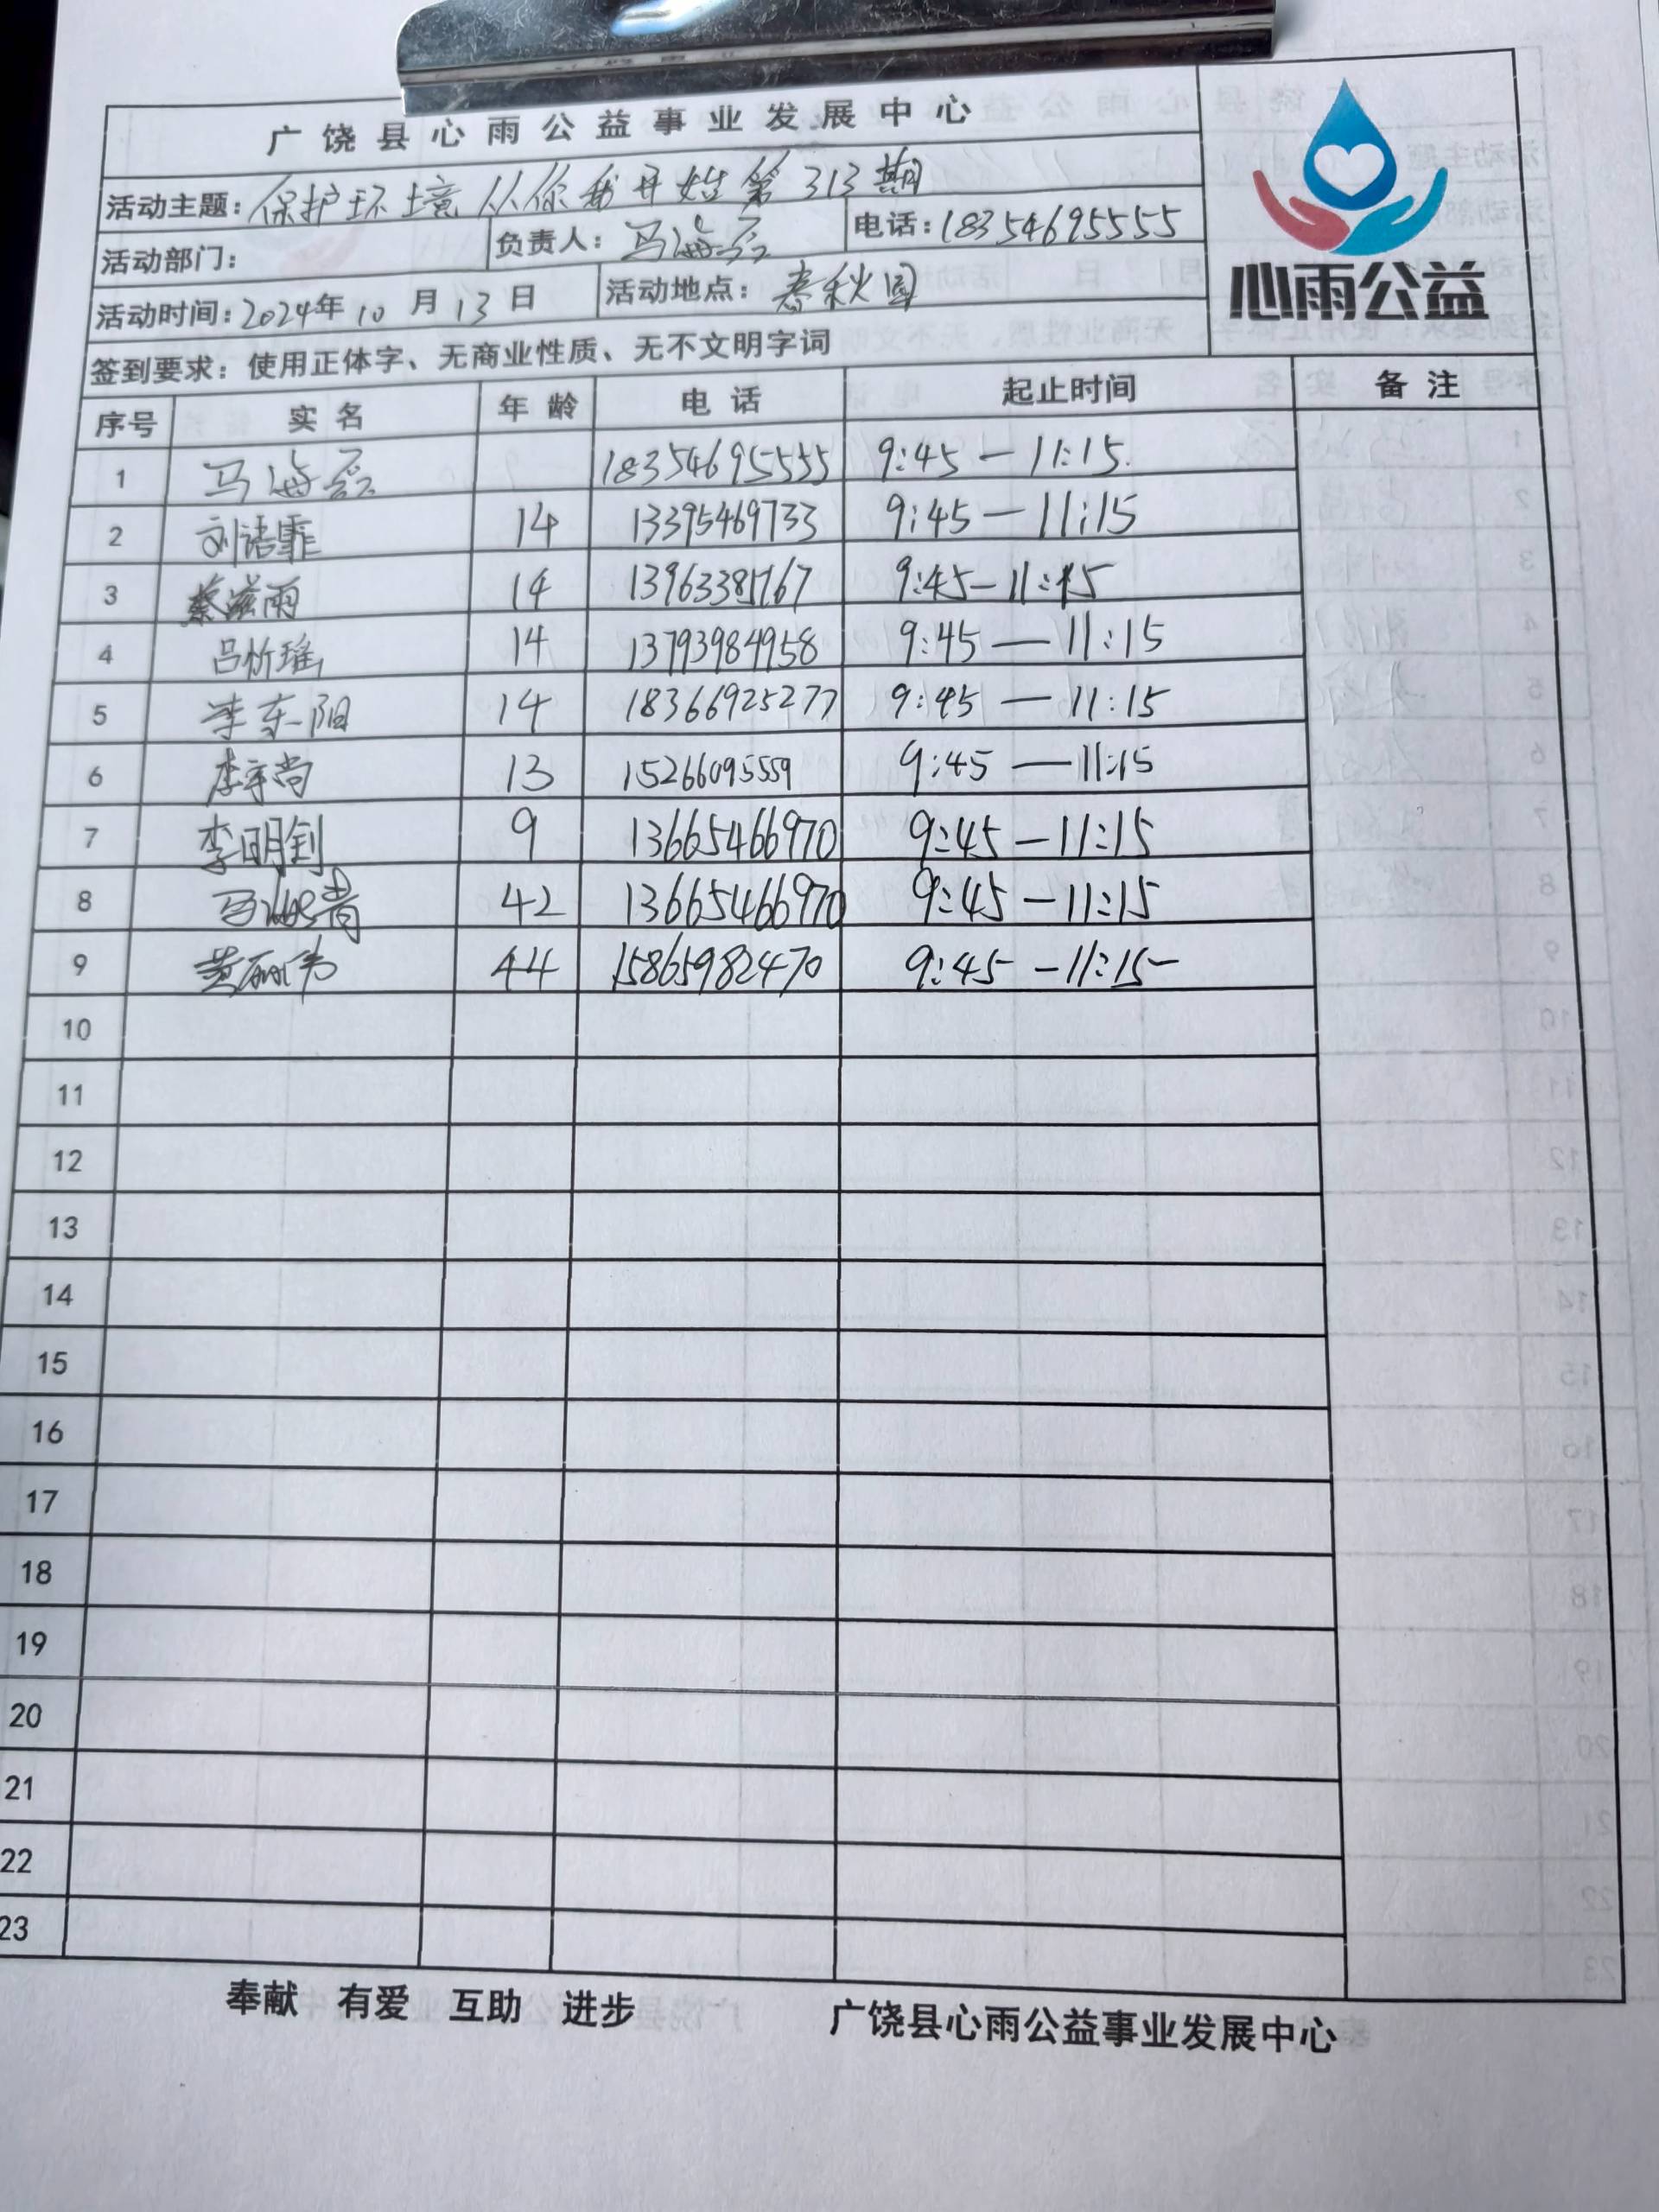 广饶县心雨公益事业发展中心
心雨公益
活动主题：保护环境从你我开始第313期
活动部门： 负责人：马海磊 电话：18354695555
活动时间：2024年10月13日 活动地点：春秋园
签到要求：使用正体字、无商业性质、无不文明字词
序号 实名 年龄 电话 起止时间 备注
1 马海磊 18354695555 9:45—11:15
2 刘诺霏 14 13395469733 9:45—11:15
3 蔡滋雨 14 9:45—11:15
4 吕忻瑶 14 13793984958 9:45—11:15
5 李东阳 14 18366925277 9:45—11:15
6 李宇尚 13 15266095559 9:45—11:15
7 李明钊 9 13665466970 9:45—11:15
8 马 青 42 13665466970 9:45—11:15
9 黄丽伟 44 15865982470 9:45—11:15
10
11
12
13
14
15
16
17
18
19
20
21
22
23
奉献 有爱 互助 进步 广饶县心雨公益事业发展中心